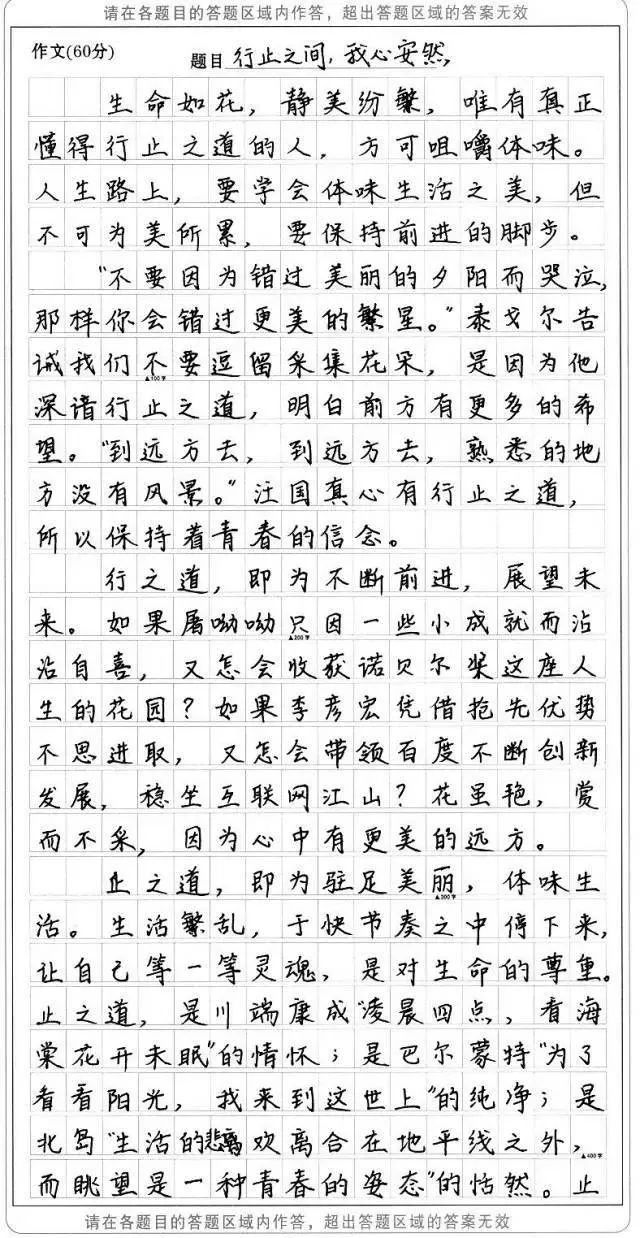 请在各题目的答题区域内作答，超出答题区域的答案无效
作文(60分)
题目 行止之间，我心安然
生命如花，静美纷繁，唯有真正
懂得行止之道的人，方可咀嚼体味。
人生路上，要学会体味生活之美，但
不可为美所累，要保持前进的脚步。
“不要因为错过美丽的夕阳而哭泣，
那样你会错过更美的繁星。”泰戈尔告
诫我们不要逗留采集花朵，是因为他
▲100字
深谙行止之道，明白前方有更多的希
望。“到远方去，到远方去，熟悉的地
方没有风景。”汪国真心有行止之道，
所以保持着青春的信念。
行之道，即为不断前进，展望未
来。如果屠呦呦只因一些小成就而沾
▲200字
沾自喜，又怎会收获诺贝尔奖这座人
生的花园？如果李彦宏凭借抢先优势
不思进取，又怎会带领百度不断创新
发展，稳坐互联网江山？花虽艳，赏
而不采，因为心中有更美的远方。
止之道，即为驻足美丽，体味生
▲300字
活。生活繁乱，于快节奏之中停下来，
让自己等一等灵魂，是对生命的尊重。
止之道，是川端康成“凌晨四点，看海
棠花开未眠”的情怀；是巴尔蒙特“为了
看看阳光，我来到这世上”的纯净；是
北岛“生活的悲离欢离合在地平线之外，
▲400字
而眺望是一种青春的姿态”的恬然。止
请在各题目的答题区域内作答，超出答题区域的答案无效